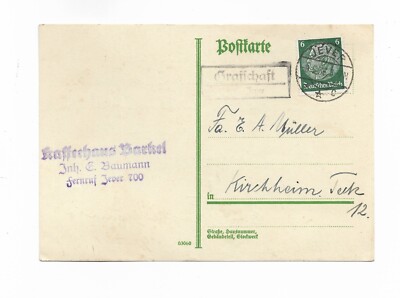 Postkarte
6 6
JEVER
Deutsches Reich
Grafschaft
Fa. E. A. Müller
Kaffeehaus Barkel
Inh. E. Baumann
Fernruf Jever 700
in
Kirchheim, Teck
12.
Straße, Hausnummer,
Gebäudeteil, Stockwerk